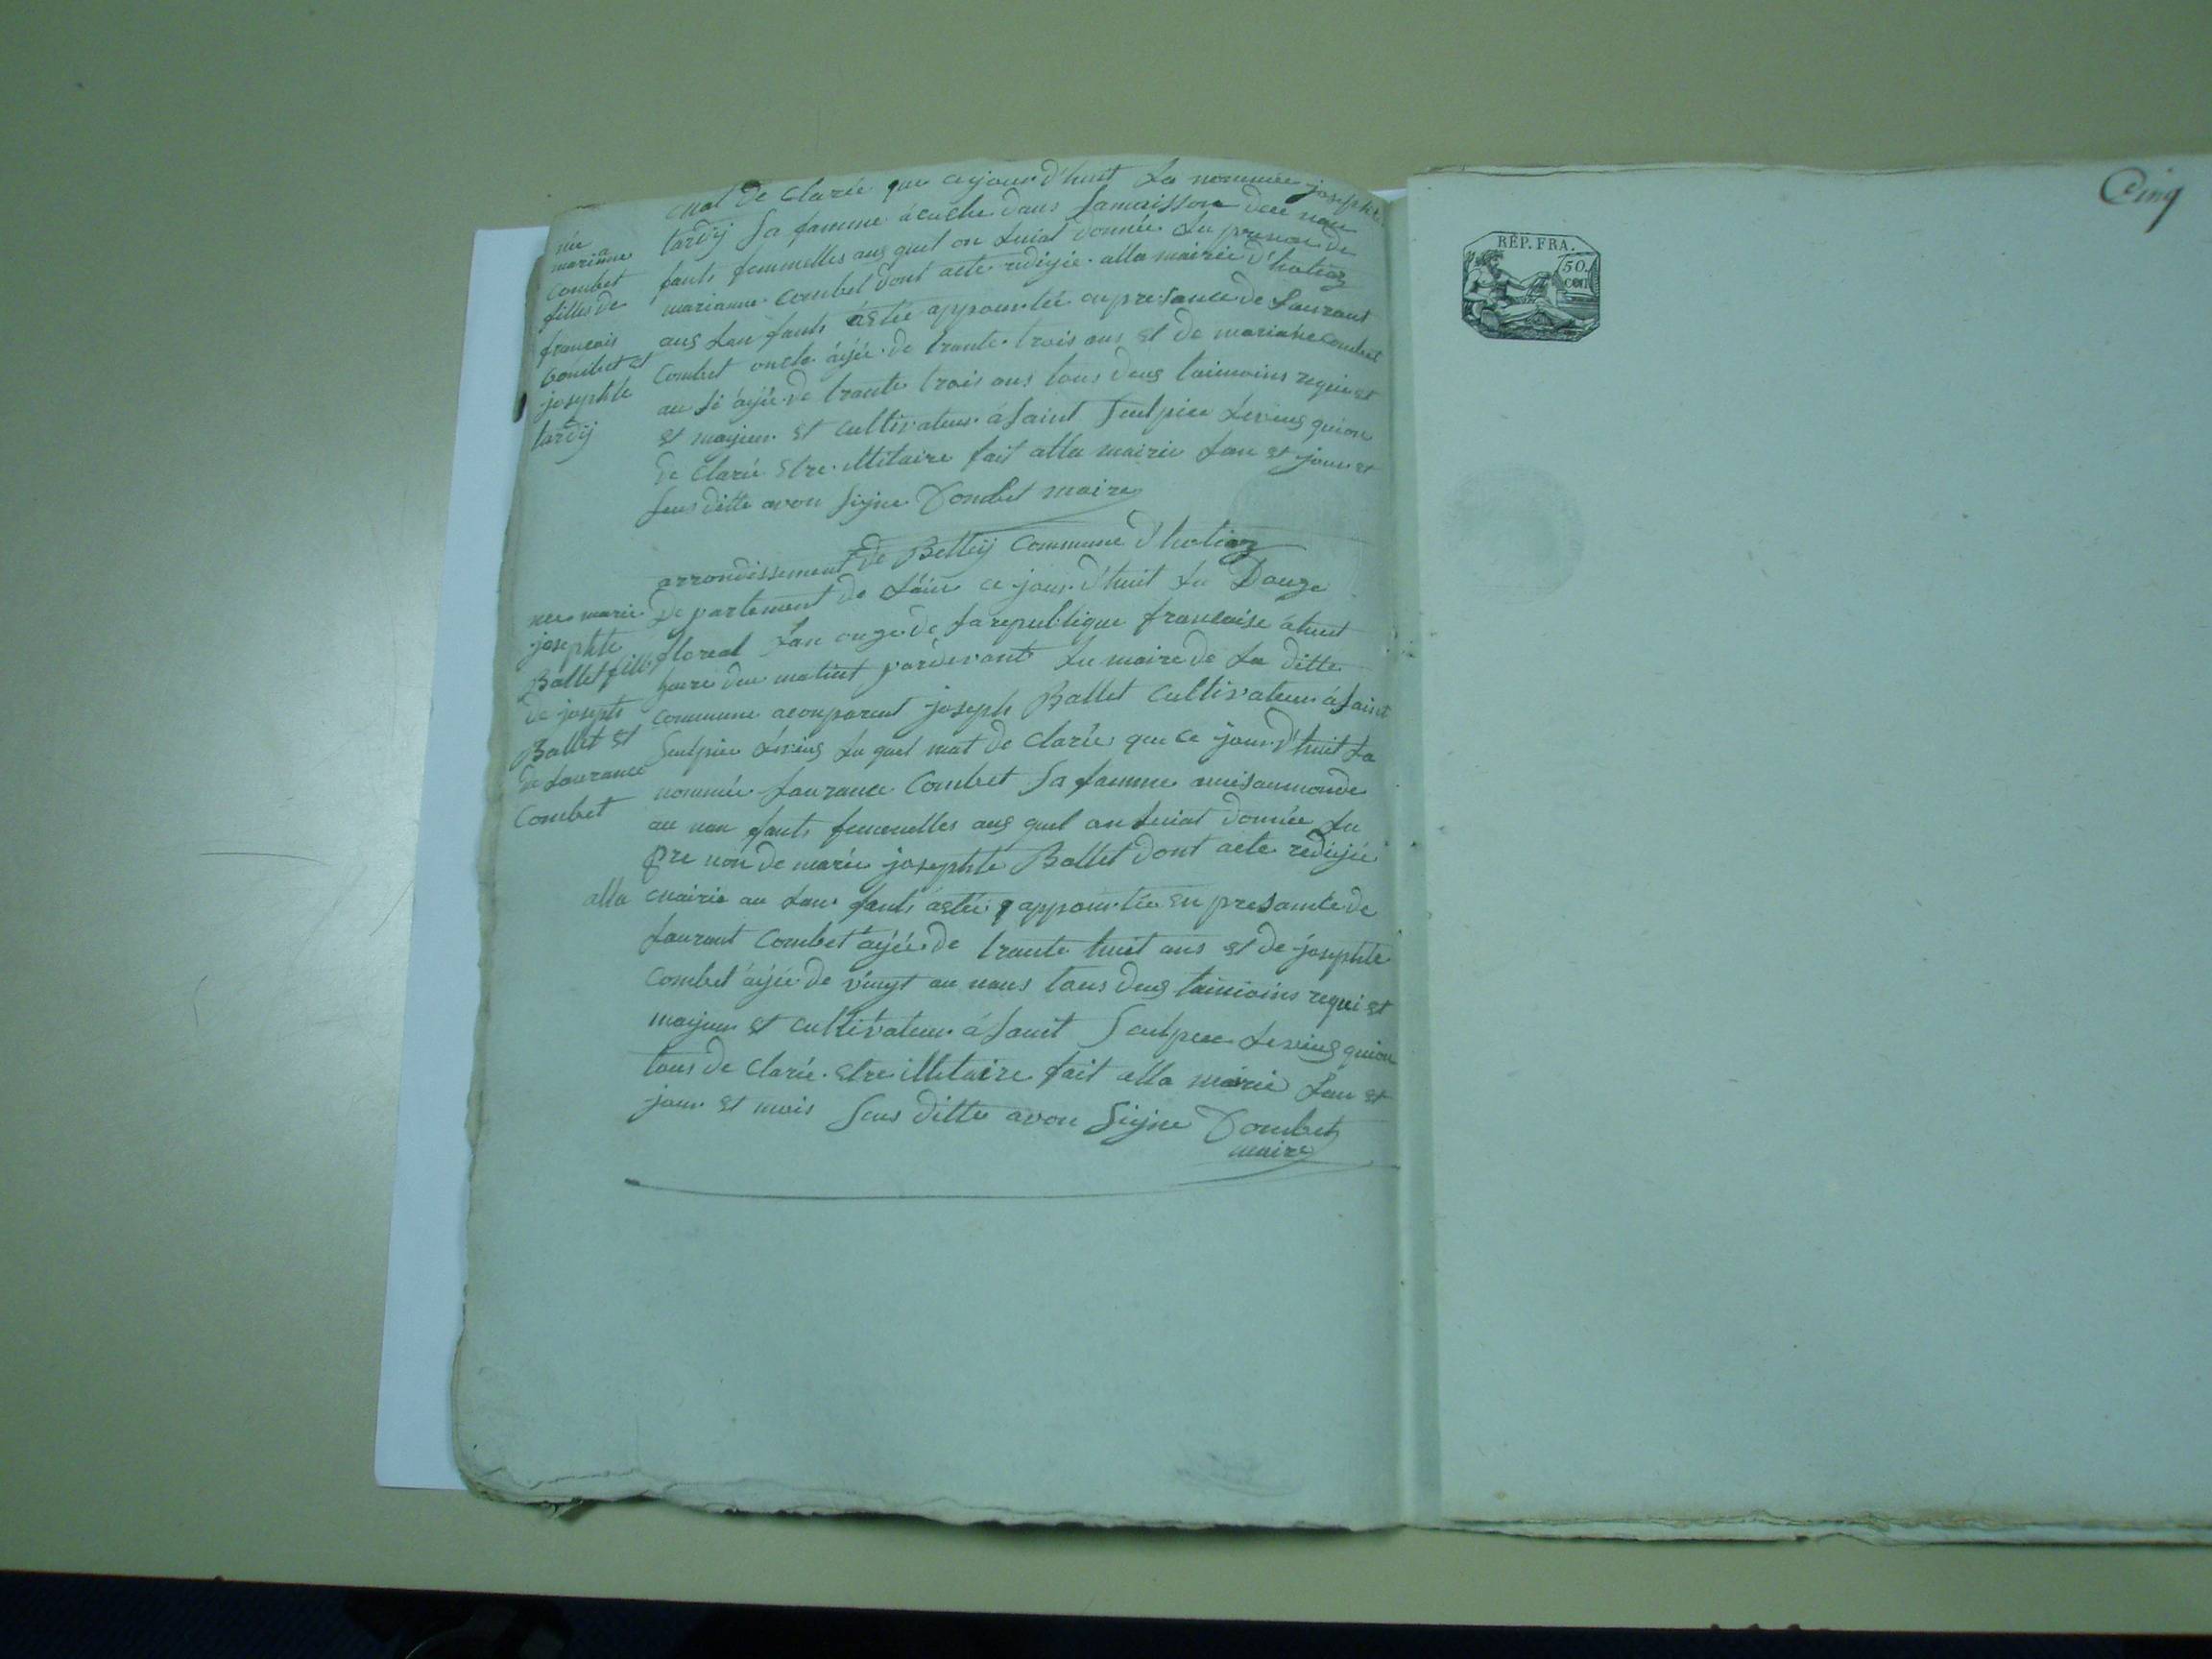 mat de clarée que cejour d'huit La nommée josephte
tardij sa famme acuché dans samaisson deu nan
fants femmelles aus quel on Luiat donnée Lu prenon de
marianne Combet dont acte redigée alla mairie d'hotiaz
aus Lan fants astée appourtée en presance de Laurant
Combet oncle agée de trante trois ans et de mariane Combet
au si agée de trante trois ans tous deus taimoins requi et
et majeur et cultivateur a saint Seulpice Levieus quion
de clarée etre illitaire fait alla mairie Lan et jour et
sus ditte avon Signe Combet maire
née
marianne
Combet
filles de
francois
Combet et
josephte
tardij
arrondissement de Belleij Commune d'hotiaz
departement de L'ain ce jour d'huit Lu Douze
floreal Lan onze de La republique francaise à huit
hure deu matint pardevant Lu maire de La ditte
commune aconpareut joseph Ballet cultivateur à saint
Seulpice Levieus Lu quel mat de clarée que ce jour d'huit La
nommée Laurance Combet sa famme amisaumonde
au nan fants femmelles aus quel on Luiat donnée Lu
pre non de marie josephte Ballet dont acte redigée
alla mairie au Lan fants astée appourtée en presante de
Laurant Combet agée de trante huit ans et de josephte
Combet agée de vingt au nans tous deus taimoins requi et
majeur et cultivateur a sauit Seulpice Levieus quion
tous de clarée etre illitaire fait alla mairie Lan et
jour et mois sus ditte avon Signe Combet
maire
nee marie
josephte
Ballet fille
de joseph
Ballet et
de Laurance
Combet
Cinq
RÉP. FRA.
50.
CEN.